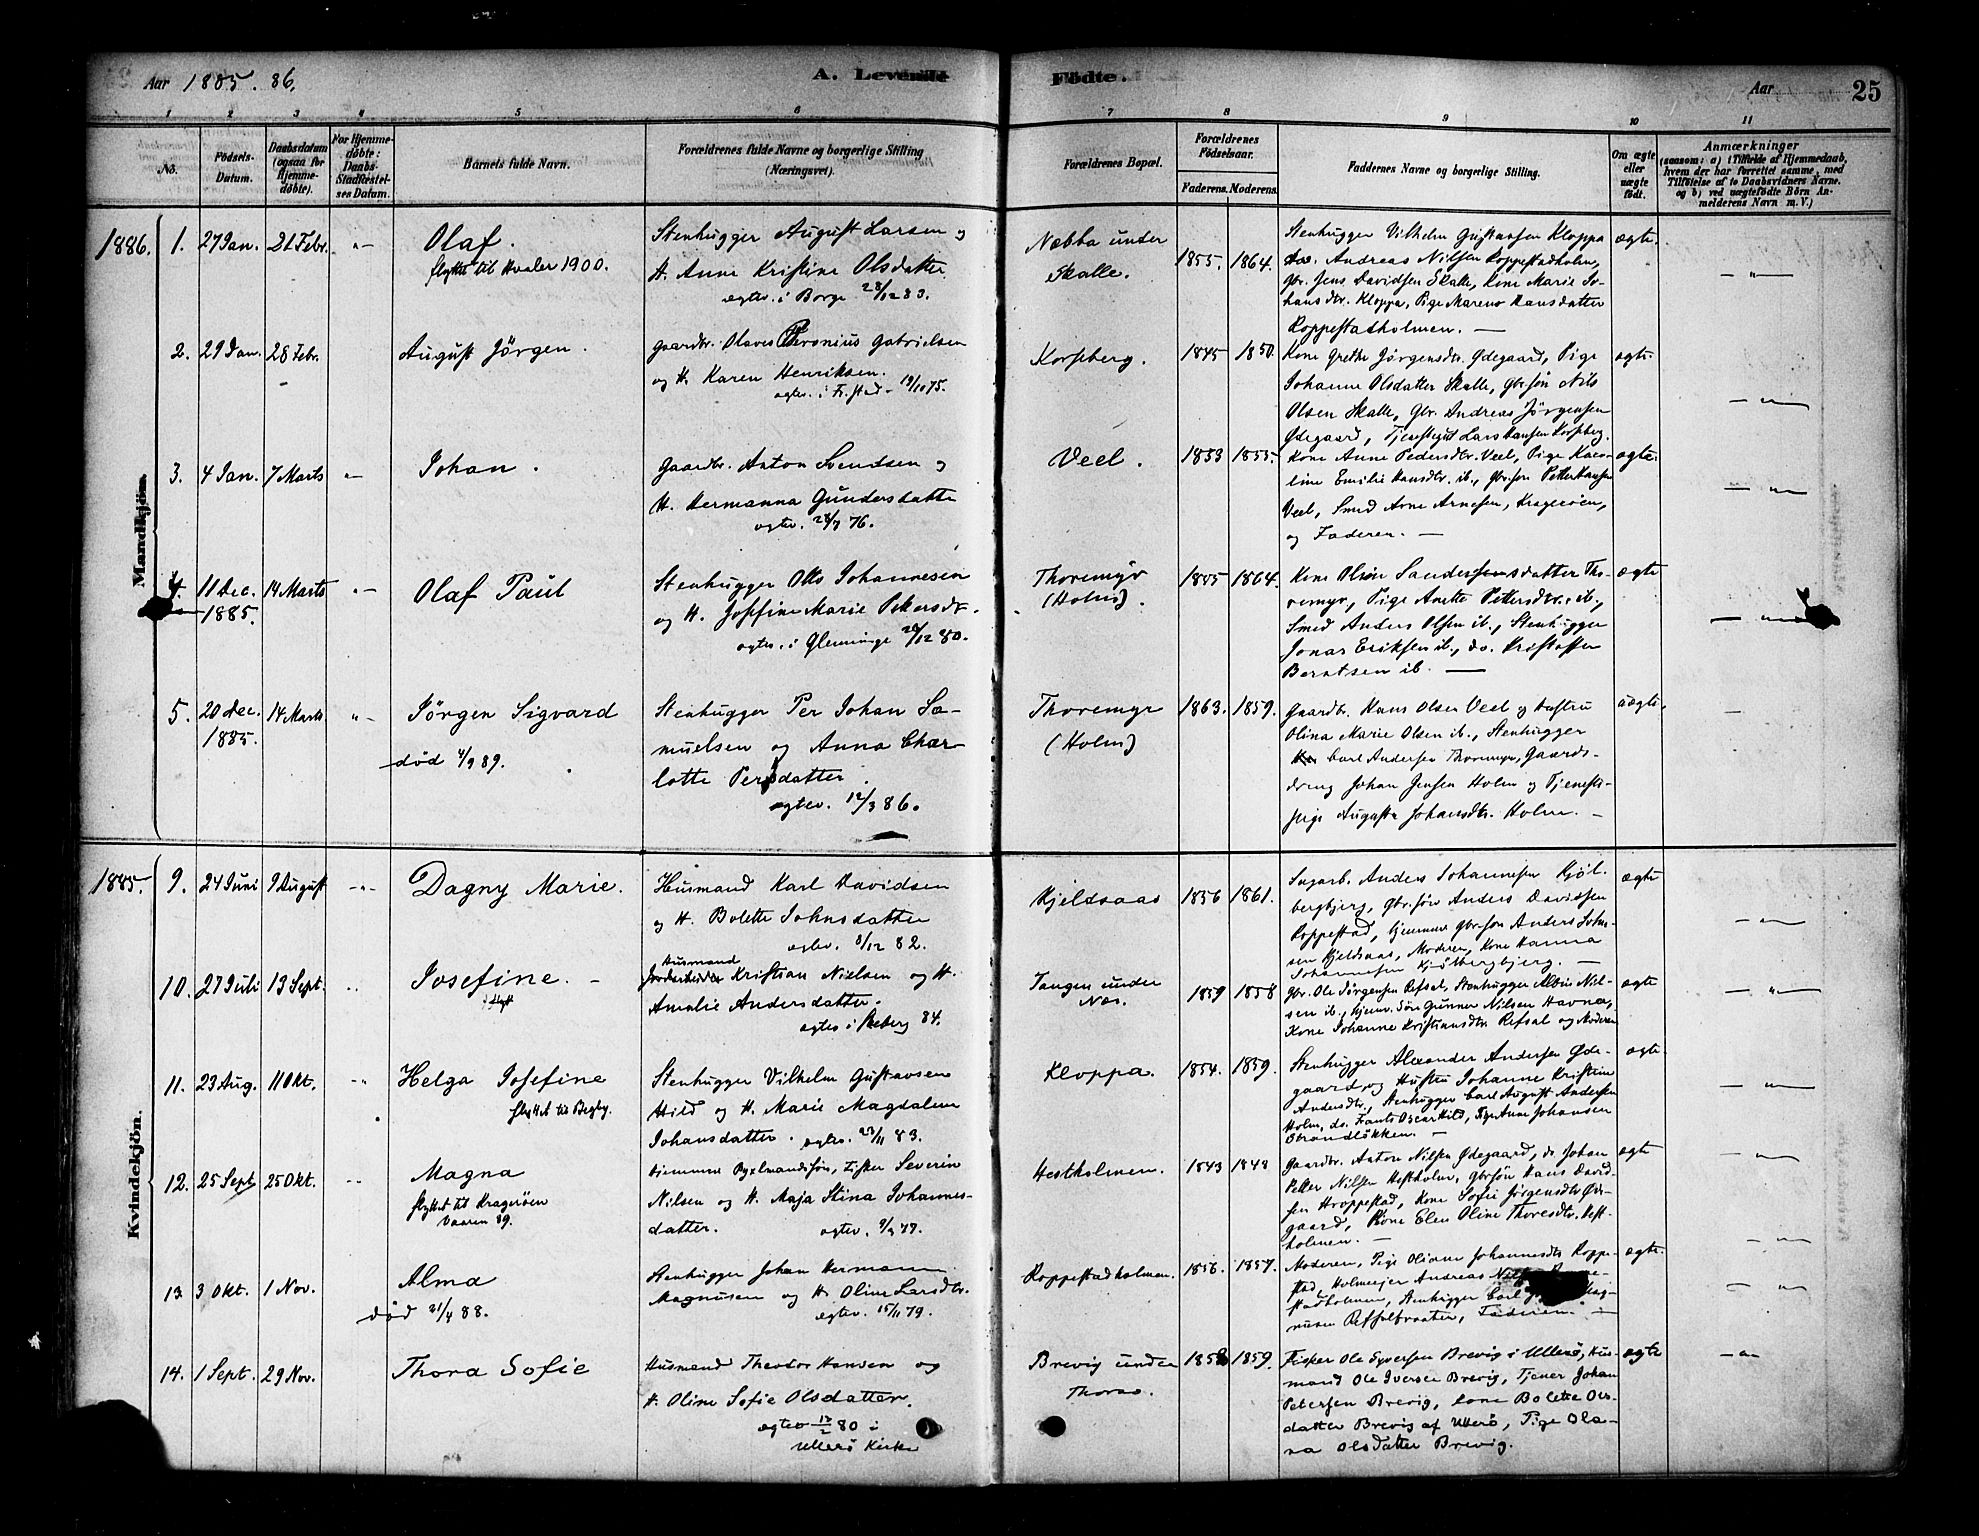 Aar 1885. 86.
A. Levende
Födte.
Aar
25
1 2 3 4 5 6 7 8 9 10 11
No.
Födsels-
Datum.
Daabsdatum
(ogsaa for
Hjemme-
döbte).
For Hjemme-
döbte:
Daabs-
Stadfæstel-
ses Datum.
Barnets fulde Navn.
Forældrenes fulde Navne og borgerlige Stilling
(Næringsvei).
Forældrenes Bopæl.
Forældrenes
Födselsaar.
Faderens. Moderens.
Faddernes Navne og borgerlige Stilling.
Om ægte
eller
uægte
født.
Anmærkninger
(saasom: a) i Tilfælde af Hjemmedaab,
hvem der har forrettet samme, med
Tilföielse af to Daabsvidners Navne.
og b) ved uægtefödte Börn An-
melderens Navn m. V.)
Mandkjön.
1886.
1. 27 Jan. 21 Febr. "-
Olaf.
flyttet til Hvaler 1900.
Stenhugger August Larsen og
H. Anne Kristine Olsdatter
egtev. i Borge 28/12 83.
Næbba under
Skalle.
1855. 1864.
Stenhugger Vilhelm Gustavsen Kloppa
do. Andreas Nilsen Roppestadholm,
Gbr. Jens Davidsen Skalle, Kone Marie Jo-
hansdtr. Kloppa, Pige Maren Hansdatter
Roppestadholmen. —
ægte.
— " —
2. 29 Jan. 28 Febr.
August Jörgen.
Gaardbr. Olaves Gabrielsen
og H. Karen Henriksen.
egtev. i Fr.stad - 19/10 75.
Korpberg.
1845 1850.
Kone Grethe Jörgensdtr. Ødegaard, Pige
Johanne Olsdatter Skalle, Gbrsön Nils
Olsen Skalle, Gbr. Andreas Jörgensen
Ødegaard, Tjenestegut Lars Hansen Korpberg.
ægte.
— " —
3. 4 Jan. 7 Marts "-
Johan.
Gaardbr. Anton Svendsen og
H. Hermanna Gundersdatter
egtev. 28/7 76.
Veel.
1853 1855.
Kone Anne Pedersdtr. Veel, Pige Karo-
line Emilie Hansdtr. ib., Gbrsön Petter Hansen
Veel, Smed Arne Arnesen, Krageröen,
og Faderen. —
ægte.
— " —
4. 11 Dec.
1885.
14 Marts "-
Olaf Paul
Stenhugger Otto Johannesen
og H. Josefine Marie Petersdtr.
egtev. i Glemminge 26/12 80.
Thoremyr
(Holm).
1855 1864.
Kone Olsine Sandersensdatter Tho-
remyr, Pige Anette Pettersdtr. ib.,
Smed Anders Olsen ib., Stenhugger
Jonas Eriksen ib., do. Kristoffer
Berntsen ib. —
ægte
— " —
5. 20 Dec.
1885.
14 Marts "-
Jörgen Sigvard
död 4/9 89.
Stenhugger Per Johan Sa-
muelsen og Anna Char-
lotte Persdatter.
egtev. 12/3 86.
Thoremyr
(Holm)
1863. 1859.
Gaardbr. Hans Olsen Veel og Hustru
Olina Marie Olsen ib., Stenhugger
Carl Andersen Thoremyr, Gaards-
dreng Johan Jensen Holm og Tjeneste-
pige Augusta Johansdtr. Holm. —
uægte.
—
Kvindekjön.
1885.
9. 24 Juni 9 August "-
Dagny Marie.
Husmand Karl Davidsen
og H. Bolette Johnsdatter
egtev. 8/12 82.
Kjeldsaas
1856 1861.
Sagarb. Anders Johannesen Kjöl-
bergbjerg, Gbr.sön Anders Davidsen
Roppestad, hjemme Gbr.sön Anders John-
sen Kjeldsaas, Moderen, Kone Hanna
Johannesen Kjölbergbjerg. —
ægte
— " —
10. 27 Juli 13 Sept. "
Josefine. —
Husmand
Kristian Nielsen og H.
Amalie Andersdatter.
egtev i Rceberg 84.
Tangen under
Næs.
1859 1858
Gbr. Ole Jörgensen Refsal, Stenhugger Albin Niel-
sen ib., hjem. Sön Gunner Nilsen Havna,
Kone Johanne Kristiansdtr. Refsal og Moderen
ægte
— " —
11. 23 Aug. 11 Okt. "
Helga Josefine
flyttet til Begby.
Stenhugger Vilhelm Gustavsen
Hild og H. Marie Magdalene
Johansdatter. egtev. 23/11 83.
Kloppa.
1854. 1859.
Stenhugger Alexander Andersen Öde-
gaard og Hustru Johanne Kristine
Andersdtr., Stenhugger Carl August Andersen
Holm, do. Frants Oscar Hild, Pige Anne Johansen
Strandlökken. —
ægte.
— " —
12. 25 Sept 25 Okt. "
Magna
flyttet til Krageröen
Vaaren 89.
Hjemme Fisker Severin
Nilsen og H. Maja Stina Johannes-
datter. egtev. 9/9 77.
Hestholmen.
1843 1848
Gaardbr. Anton Nilsen Ødegaard, do. Johan
Petter Nilsen Hestholm, Gbrsön Hans David-
sen Hroppestad, Kone Sofie Jörgensdtr. Öde-
gaard, Kone Elen Oline Thoresdtr. Hest-
holmen. —
ægte
— " —
13. 3 Okt. 1 Nov.
Alma
död 21/4 88.
Stenhugger Johan Hermann
Magnusen og H. Oline Larsdtr.
egtev. 15/11 79.
Roppestadholmen.
1856. 1857.
Moderen, Pige Oliane Johannesdtr Roppe-
stad, Holmeejer Andreas
stadholmen, Stenhugger Carl
nusen Refsalbraaten, Faderen. —
ægte.
— " —
14. 1 Sept. 29 Nov.
Thora Sofie
Husmand Theodor Hansen og
H. Oline Sofie Olsdatter.
egtev 12/2 80 i
Ullerö Kirke
Brevig under
Thorsö.
1858 1859.
Fisker Ole Syversen Brevig i Ullerö, Hus-
mand Ole Iversen Brevig, Tjener Johan
Petersen Brevig, Cone Bolette Ols-
datter Brevig af Ullerö, Pige Ola-
va Olsdatter Brevig.
ægte
— " —